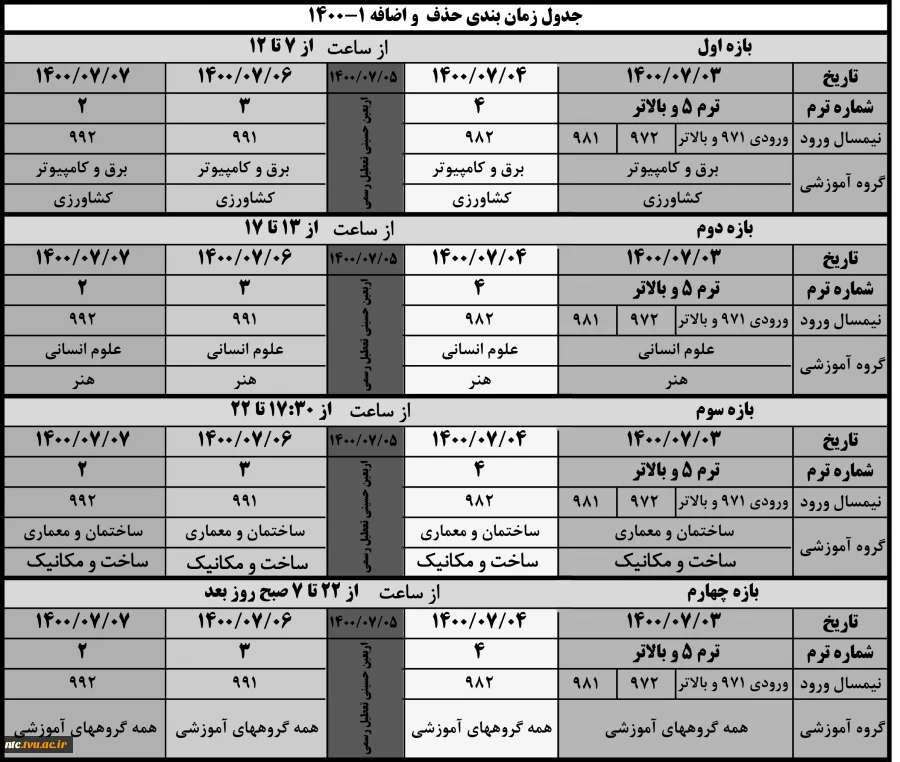 جدول زمان بندی حذف و اضافه ۱-۱۴۰۰
بازه اول از ساعت از ۷ تا ۱۲
تاریخ ۱۴۰۰/۰۷/۰۳ ۱۴۰۰/۰۷/۰۴ ۱۴۰۰/۰۷/۰۵ ۱۴۰۰/۰۷/۰۶ ۱۴۰۰/۰۷/۰۷
شماره ترم ترم ۵ و بالاتر ۴ اربعین حسینی تعطیل رسمی ۳ ۲
نیمسال ورود ورودی ۹۷۱ و بالاتر ۹۷۲ ۹۸۱ ۹۸۲ ۹۹۱ ۹۹۲
گروه آموزشی برق و کامپیوتر برق و کامپیوتر برق و کامپیوتر برق و کامپیوتر
کشاورزی کشاورزی کشاورزی کشاورزی
بازه دوم از ساعت از ۱۳ تا ۱۷
تاریخ ۱۴۰۰/۰۷/۰۳ ۱۴۰۰/۰۷/۰۴ ۱۴۰۰/۰۷/۰۵ ۱۴۰۰/۰۷/۰۶ ۱۴۰۰/۰۷/۰۷
شماره ترم ترم ۵ و بالاتر ۴ اربعین حسینی تعطیل رسمی ۳ ۲
نیمسال ورود ورودی ۹۷۱ و بالاتر ۹۷۲ ۹۸۱ ۹۸۲ ۹۹۱ ۹۹۲
گروه آموزشی علوم انسانی علوم انسانی علوم انسانی علوم انسانی
هنر هنر هنر هنر
بازه سوم از ساعت از ۱۷:۳۰ تا ۲۲
تاریخ ۱۴۰۰/۰۷/۰۳ ۱۴۰۰/۰۷/۰۴ ۱۴۰۰/۰۷/۰۵ ۱۴۰۰/۰۷/۰۶ ۱۴۰۰/۰۷/۰۷
شماره ترم ترم ۵ و بالاتر ۴ اربعین حسینی تعطیل رسمی ۳ ۲
نیمسال ورود ورودی ۹۷۱ و بالاتر ۹۷۲ ۹۸۱ ۹۸۲ ۹۹۱ ۹۹۲
گروه آموزشی ساختمان و معماری ساختمان و معماری ساختمان و معماری ساختمان و معماری
ساخت و مکانیک ساخت و مکانیک ساخت و مکانیک ساخت و مکانیک
بازه چهارم از ساعت از ۲۲ تا ۷ صبح روز بعد
تاریخ ۱۴۰۰/۰۷/۰۳ ۱۴۰۰/۰۷/۰۴ ۱۴۰۰/۰۷/۰۵ ۱۴۰۰/۰۷/۰۶ ۱۴۰۰/۰۷/۰۷
شماره ترم ترم ۵ و بالاتر ۴ اربعین حسینی تعطیل رسمی ۳ ۲
نیمسال ورود ورودی ۹۷۱ و بالاتر ۹۷۲ ۹۸۱ ۹۸۲ ۹۹۱ ۹۹۲
گروه آموزشی همه گروههای آموزشی همه گروههای آموزشی همه گروههای آموزشی همه گروههای آموزشی
ntc.tvu.ac.ir